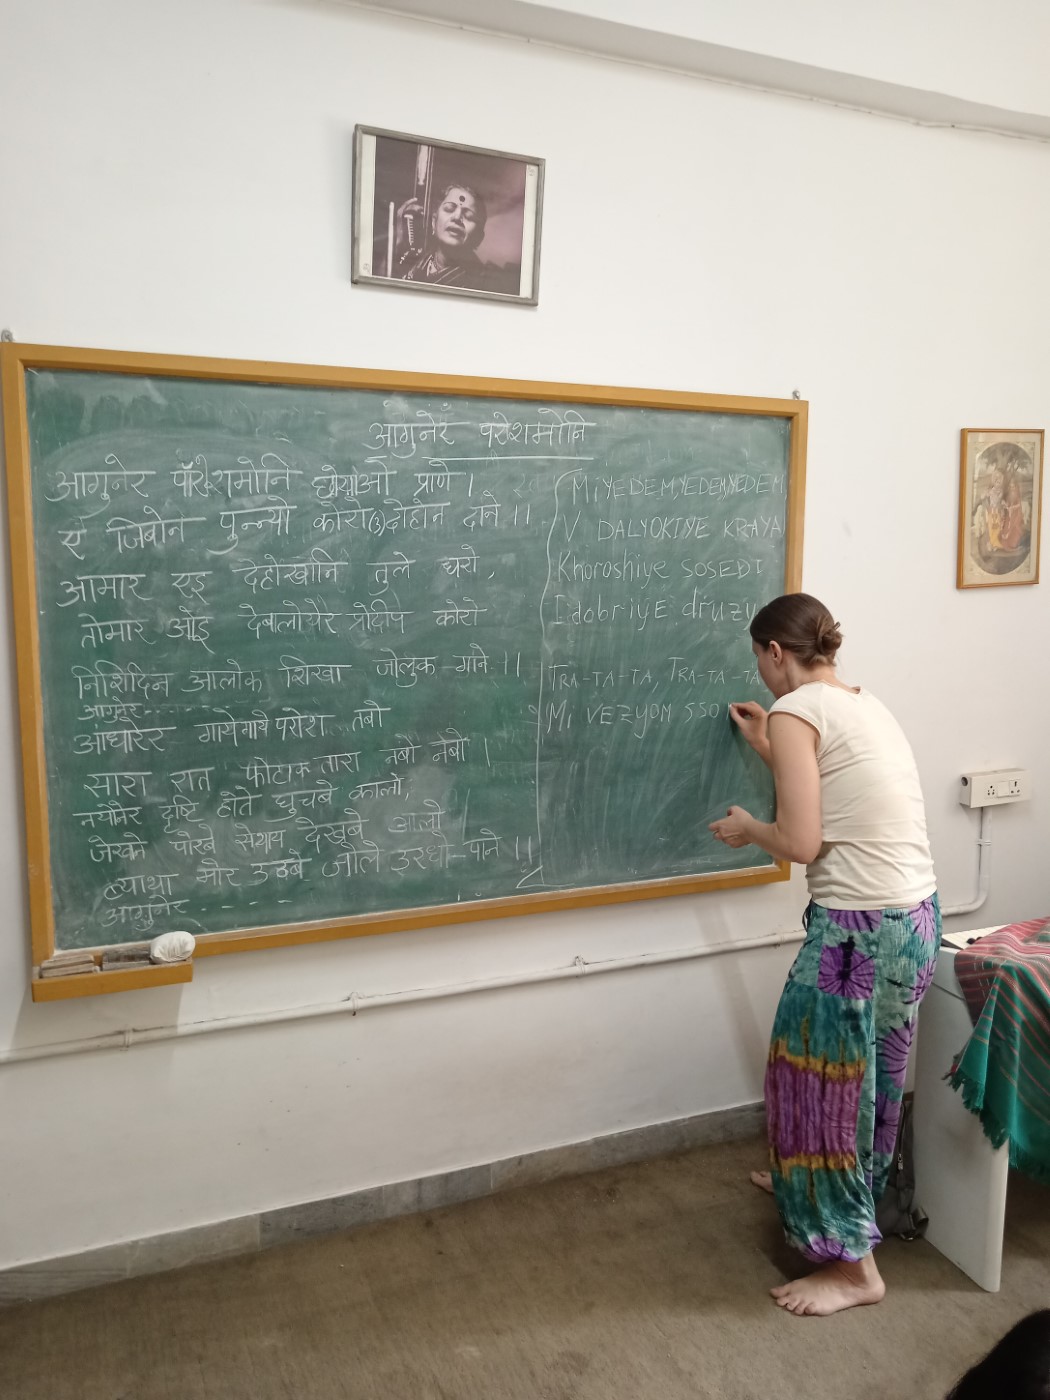 आगुनेर परोशमोनि
आगुनेर पॉरोशमोनि छोयाओ प्राणे ।
ए जिबोन पुन्न्यो कोरो दोहोन दाने ।।
आमार एइ देहोखानि तुले धरो,
तोमार ओइ देबालोयेर प्रोदीप कोरो
निशिदिन आलोक शिखा जोलुक गाने ।।
आगुनेर
आधारेर गायेगाये परोश तबो
सारा रात फोटाक तारा नबो नबो ।
नयोनेर दृष्टि होते घुचबे कालो,
जेखाने पोरबे सेथाय देखबे आलो
ब्याथा मोर उठबे जोले उरधो-पाने ।।
आगुनेर
MiYEDEM,YEDEM,YEDEM
V DALYOKIYE KRAYA
Khoroshiye SOSEDI
I dobriye druzy
TRA-TA-TA, TRA-TA-TA
Mi VEZYOM SSO